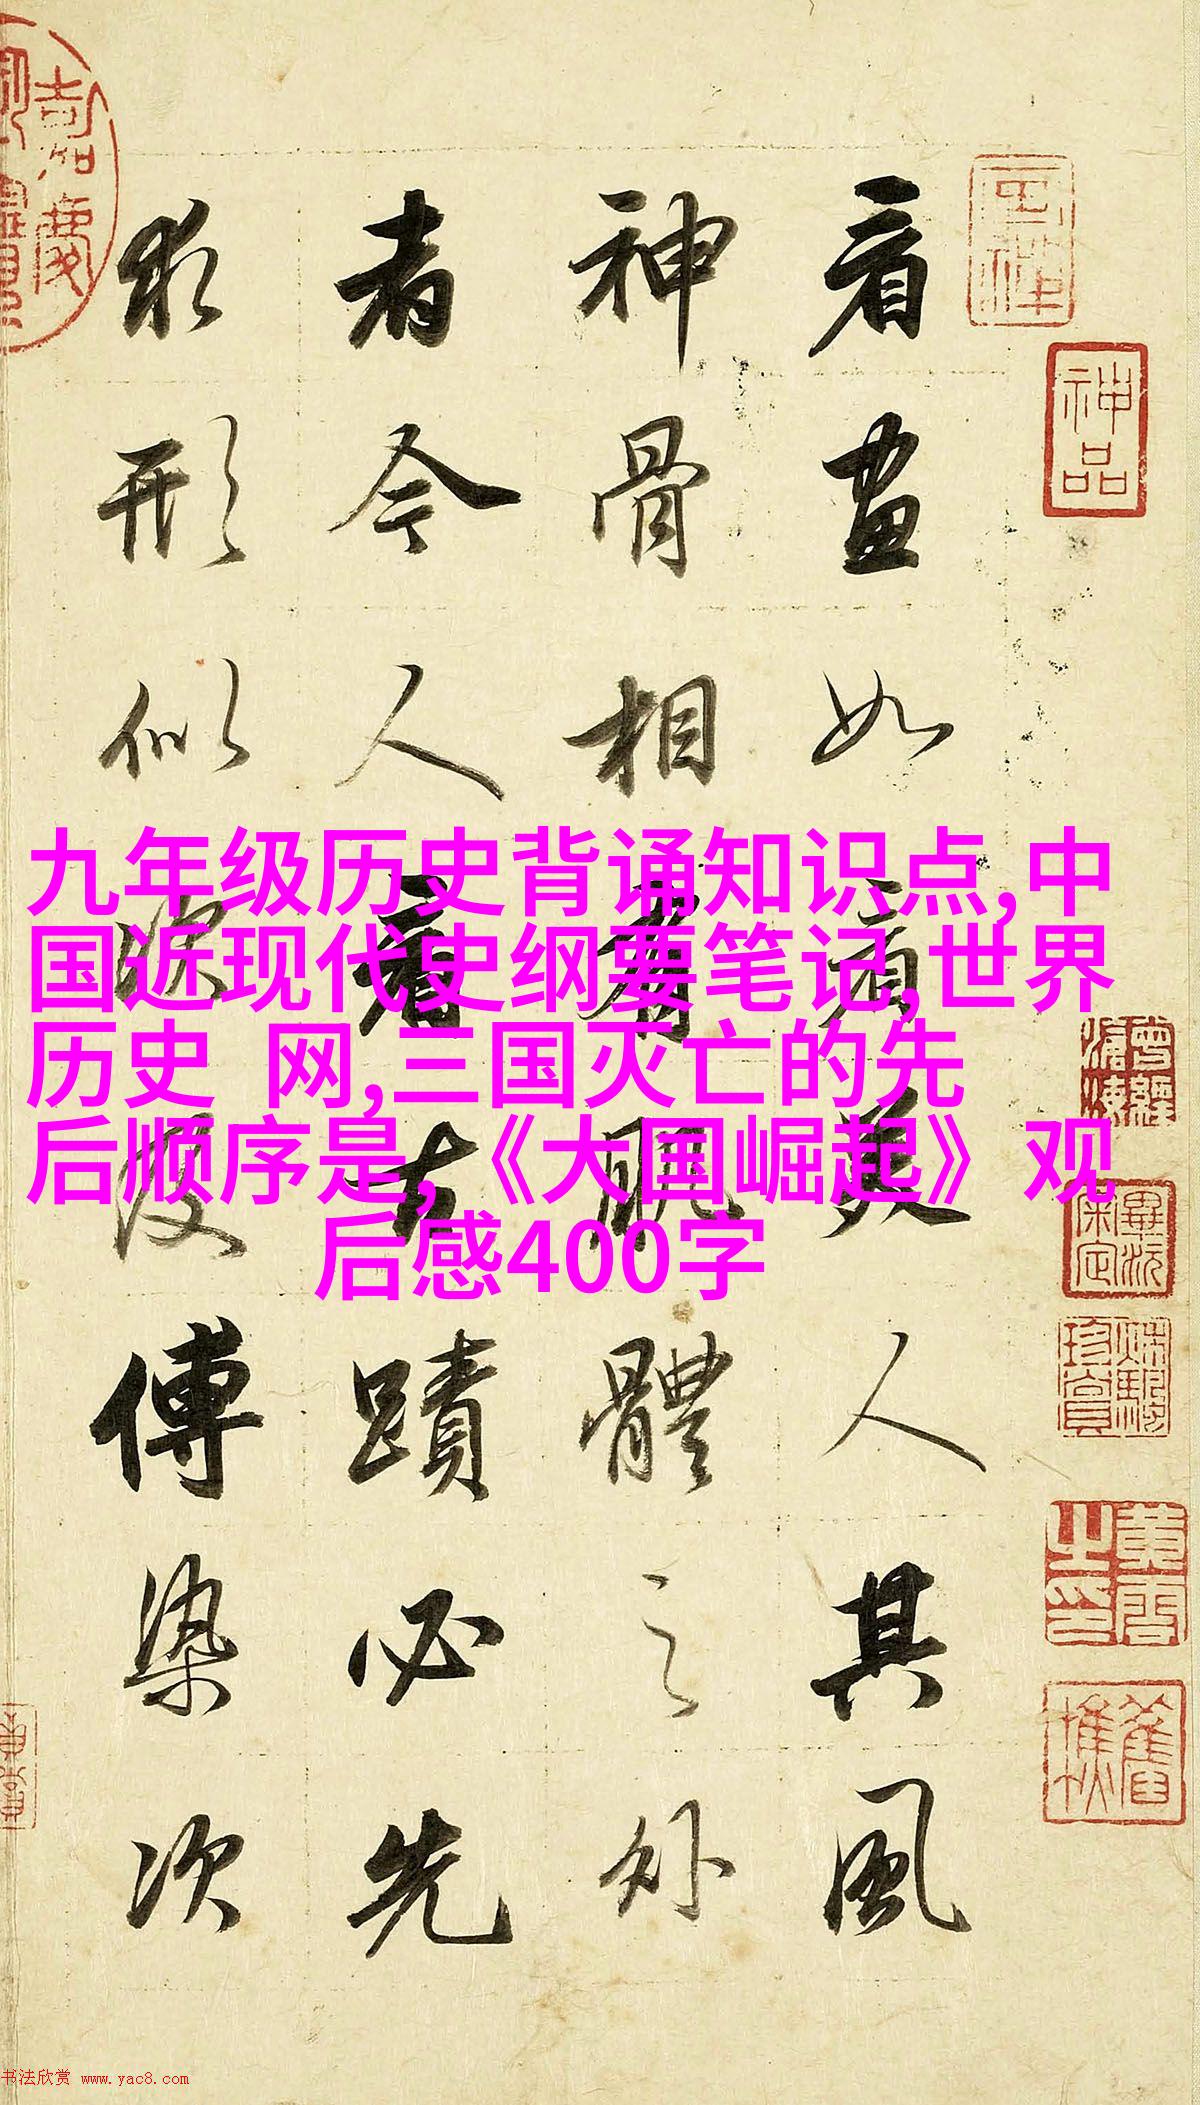 看畫如看美人其風
神骨相有肌體之外
者今人看古蹟必先
求形似次及傅染次
九年级历史背诵知识点,中
国近现代史纲要笔记,世界
历史 网,三国灭亡的先
后顺序是,《大国崛起》观
后感400字
神品
畢沅審定
书法欣赏 www.yac8.com